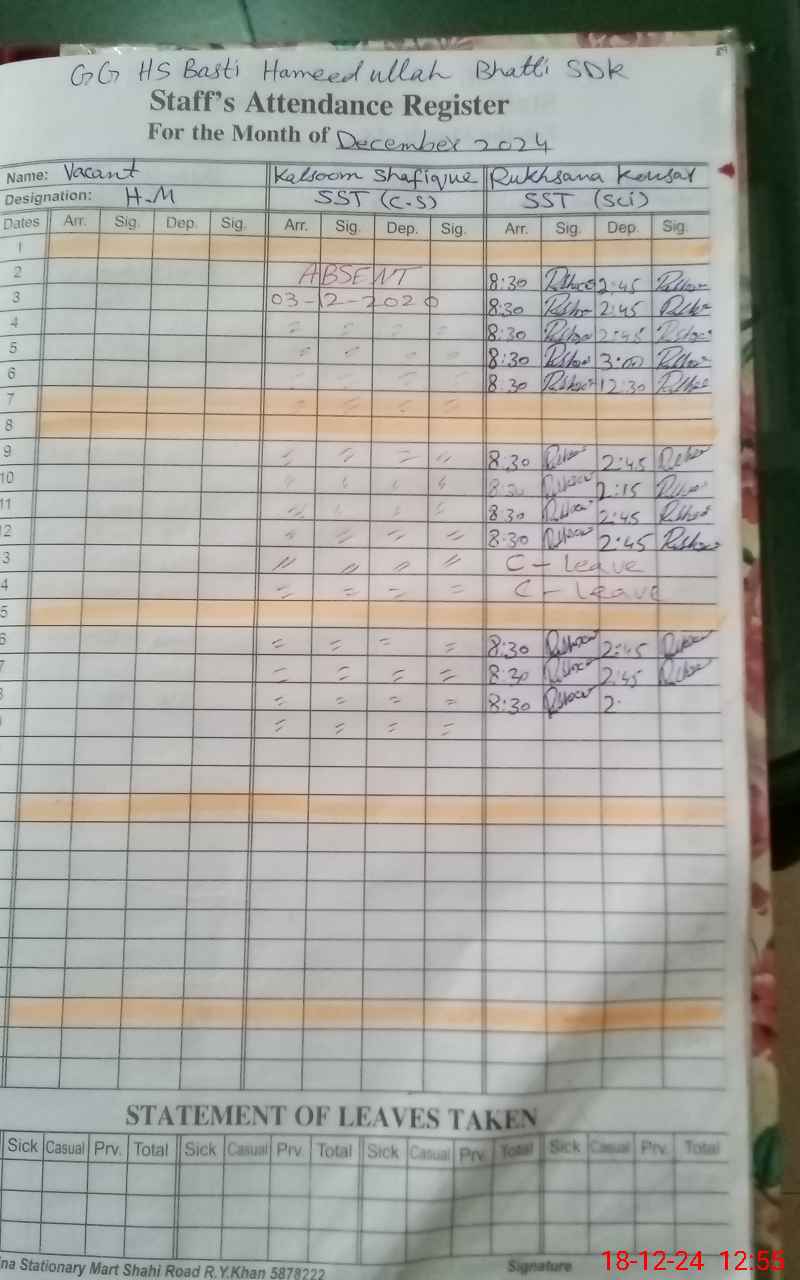 GG HS Basti Hameedullah Bhatti SDK
Staff's Attendance Register
For the Month of December 2024
Name: Vacant Kalsoom Shafique Rukhsana Kousar
Designation: H.M SST (C-S) SST (Sci)
Dates Arr. Sig. Dep. Sig. Arr. Sig. Dep. Sig. Arr. Sig. Dep. Sig.
1
2 ABSENT 8:30 2:45
3 03-12-2020 8:30 2:45
4 〃 〃 〃 〃 8:30 2:45
5 〃 〃 〃 〃 8:30 3:00
6 8:30 12:30
7 〃 〃 〃 〃
8
9 〃 〃 〃 〃 8:30 2:45
10 〃 〃 〃 〃 8:30 2:15
11 〃 〃 〃 〃 8:30 2:45
12 〃 〃 〃 〃 8:30 2:45
3 〃 〃 〃 〃 C - leave
4 〃 〃 〃 〃 C - leave
5
6 〃 〃 〃 〃 8:30 2:45
7 〃 〃 〃 〃 8:30 2:45
〃 〃 〃 〃 8:30 2.
〃 〃 〃 〃
STATEMENT OF LEAVES TAKEN
Sick Casual Prv. Total Sick Casual Prv. Total Sick Casual Prv. Total Sick Casual Prv. Total
na Stationary Mart Shahi Road R.Y.Khan 5878222 Signature
18-12-24 12:55